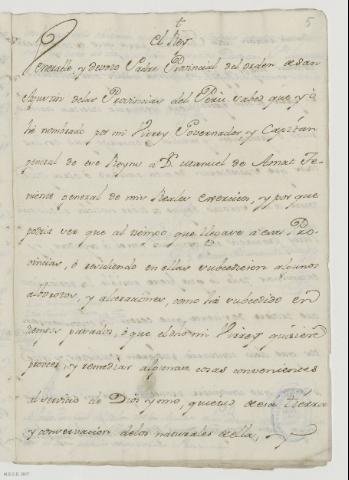 5
El Rey
Venerable, y devoto Padre Provincial del orden de San
Agustin de las Provincias del Perú sabed que yó
hé nombrado por mi Virrey Governador, y Capitan
general de ese Reyno a Dn. Manuel de Amat Te-
niente general de mis Reales Exercitos, y por que
podria ser que al tiempo que llegare á esas Pro-
vincias, ó residiendo en ellas subcediesen algunos
alborotos, y alteraciones, como há subcedido en
tiempos pasados, ó que el dicho mi Virrey quisiere
proveer, y remediar algunas cosas convenientes
al servicio de Dios y mio, quietud de esa tierra
y conservacion de los naturales de ella, y